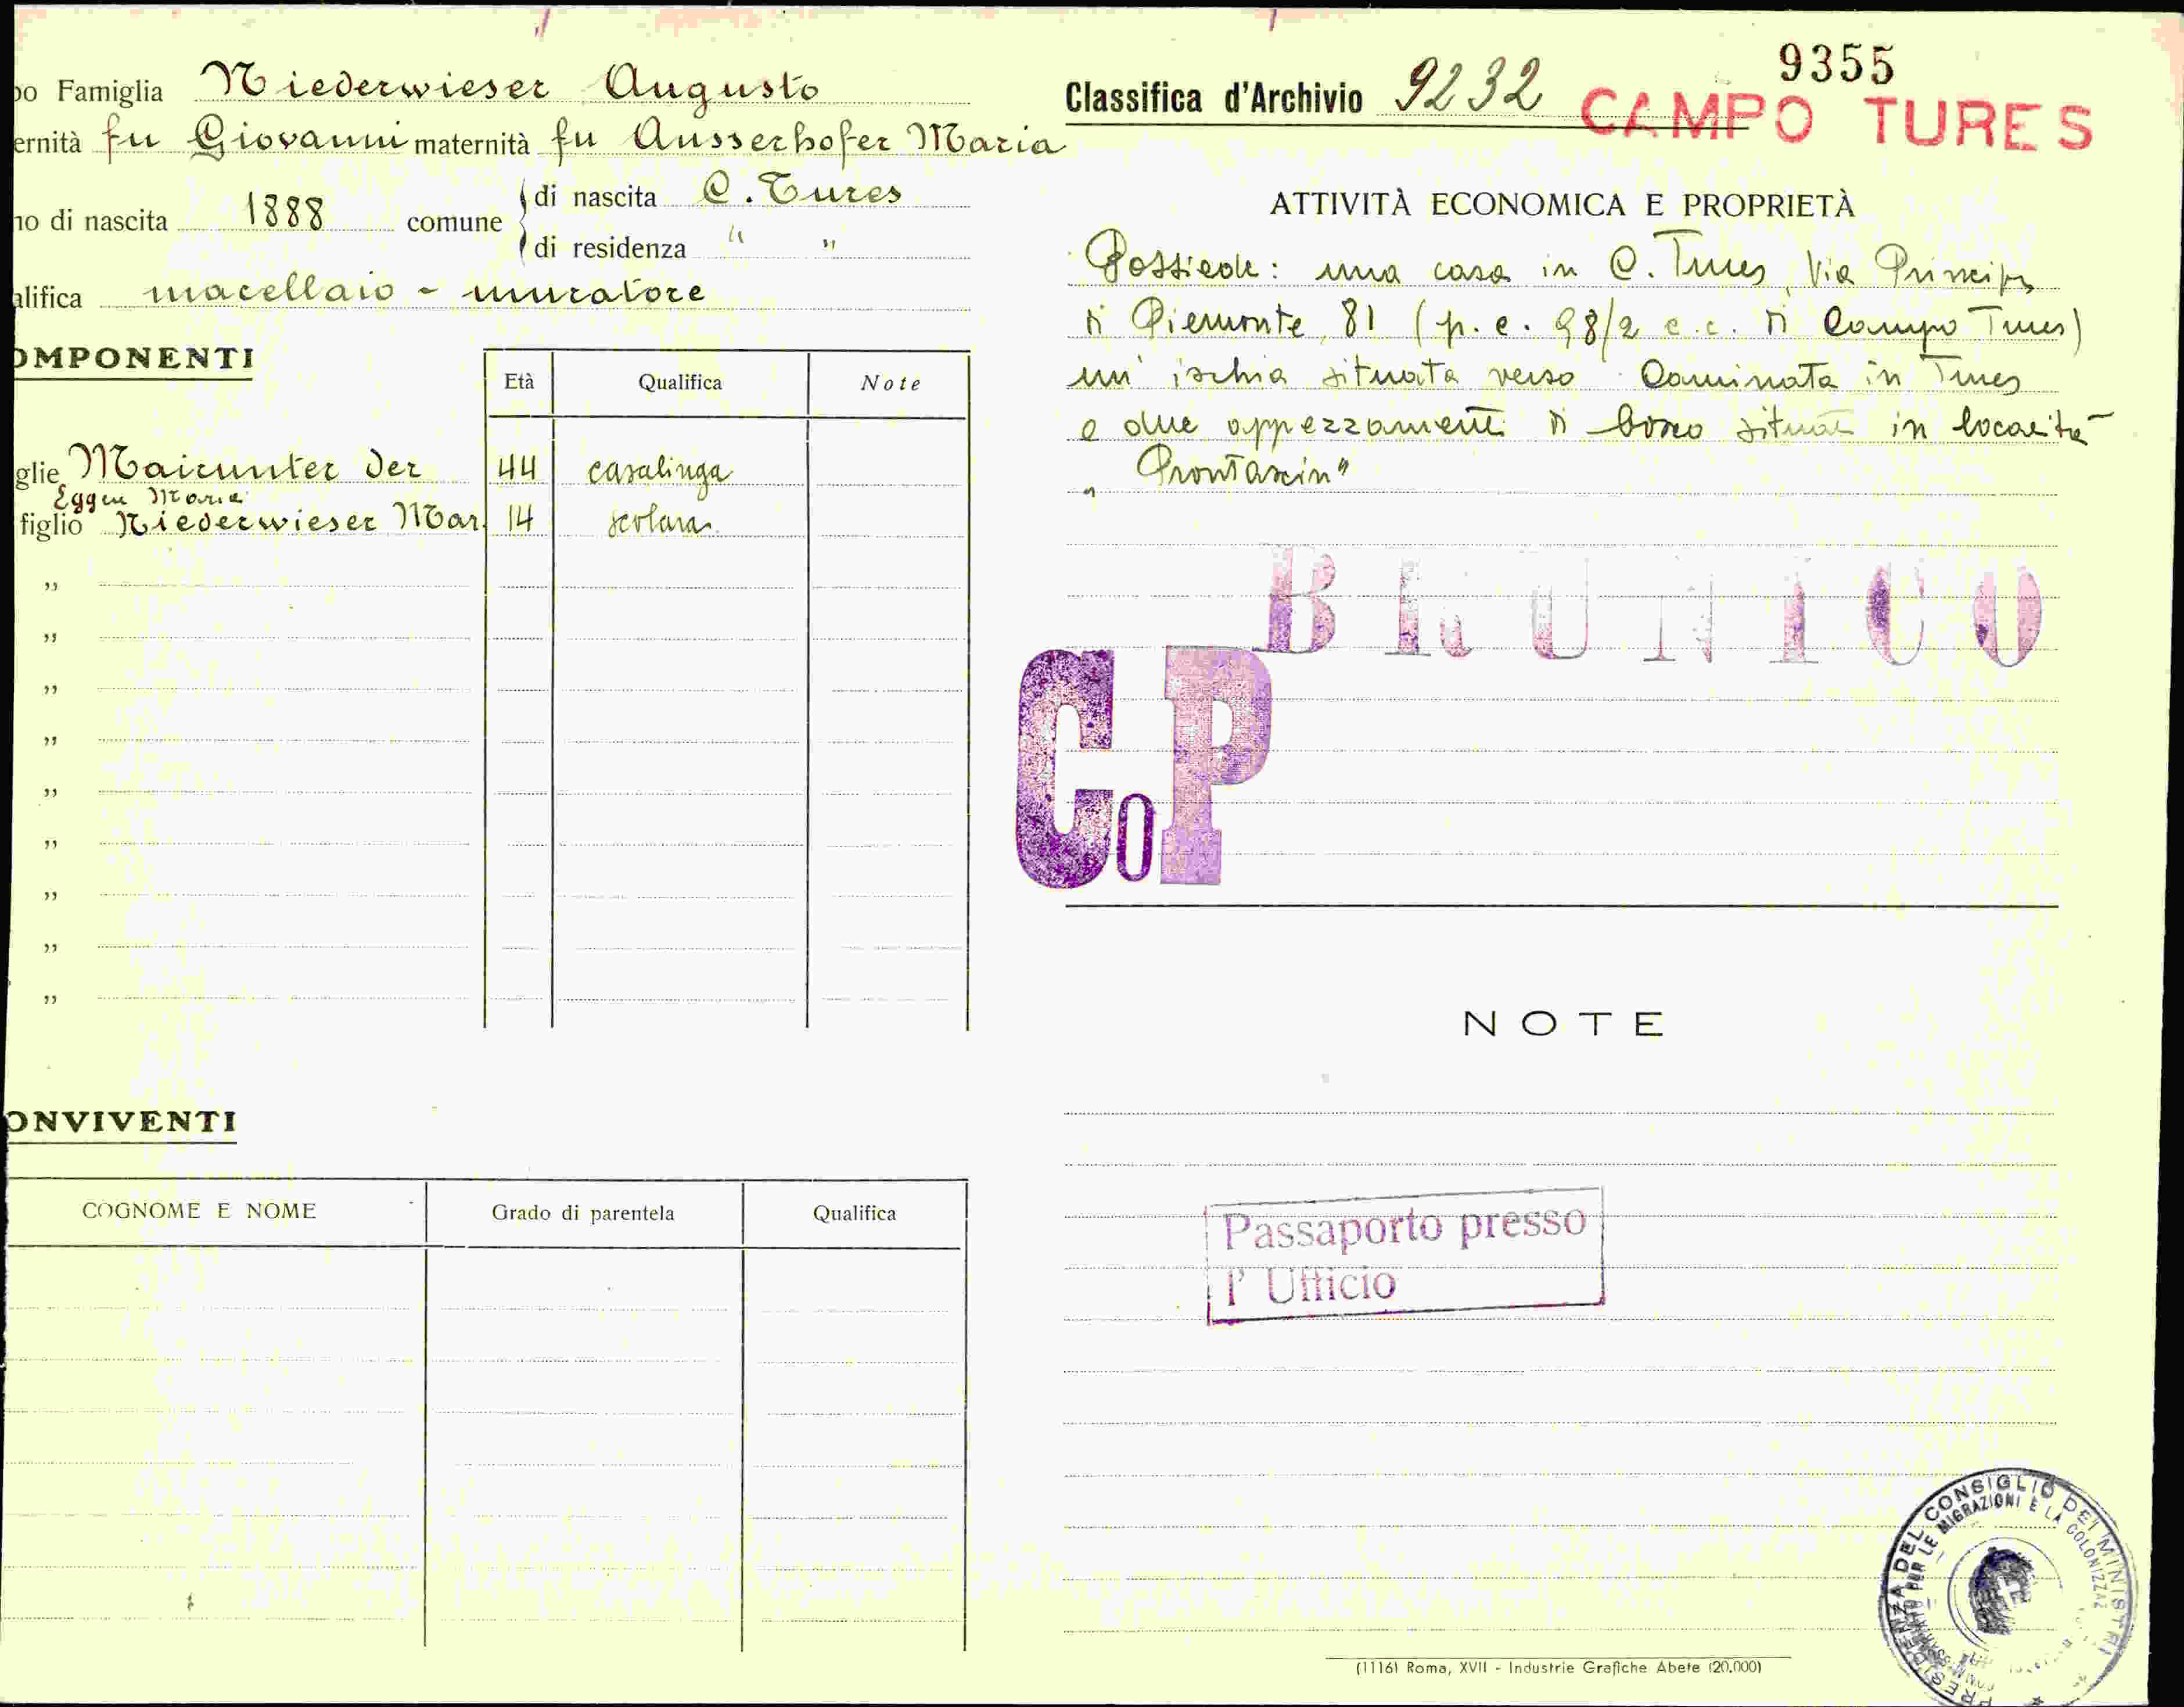 po Famiglia Niederwieser Augusto
ernità fu Giovanni maternità fu Ausserhofer Maria
no di nascita 1888 comune di nascita C. Tures
di residenza " "
alifica macellaio - muratore
OMPONENTI
Età Qualifica Note
glie Mairunter Der 44 casalinga
Eggen Maria
figlio Niederwieser Mar. 14 scolara
"
"
"
"
"
"
"
"
"
ONVIVENTI
COGNOME E NOME Grado di parentela Qualifica
9355
Classifica d'Archivio 9232 CAMPO TURES
ATTIVITÀ ECONOMICA E PROPRIETÀ
Possiede: una casa in C. Tures, Via Principe
di Piemonte, 81 (p. e. 98/2 c.c. di Campo Tures)
un' ischia situata verso Caminata in Tures
e due appezzamenti di bosco situati in località
"
BRUNICO
CoP
NOTE
Passaporto presso
l' Ufficio
PRESIDENZA DEL CONSIGLIO DEI MINISTRI
PER LE MIGRAZIONI E LA COLONIZZAZ
(1116) Roma, XVII - Industrie Grafiche Abete (20.000)